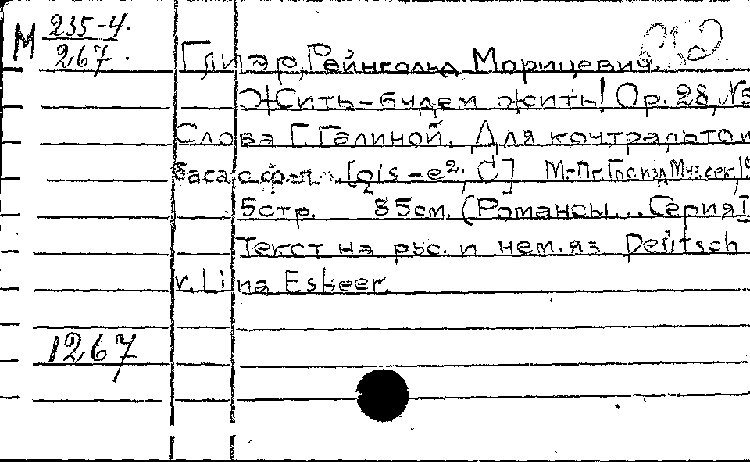 М 235-4.
267.
Глиэр, Рейнгольд Морицевич.
Жить-будем жить! Op. 28, №
Слова Г. Галиной. Для контральто и
баса с ф-п. [gis-e², C] М.-Пг. Госизд Муз.сек,
5 стр. 35 см. (Романсы... Серия I
Текст на рус. и нем. яз. Deutsch
v. Lina Esbeer.
1267